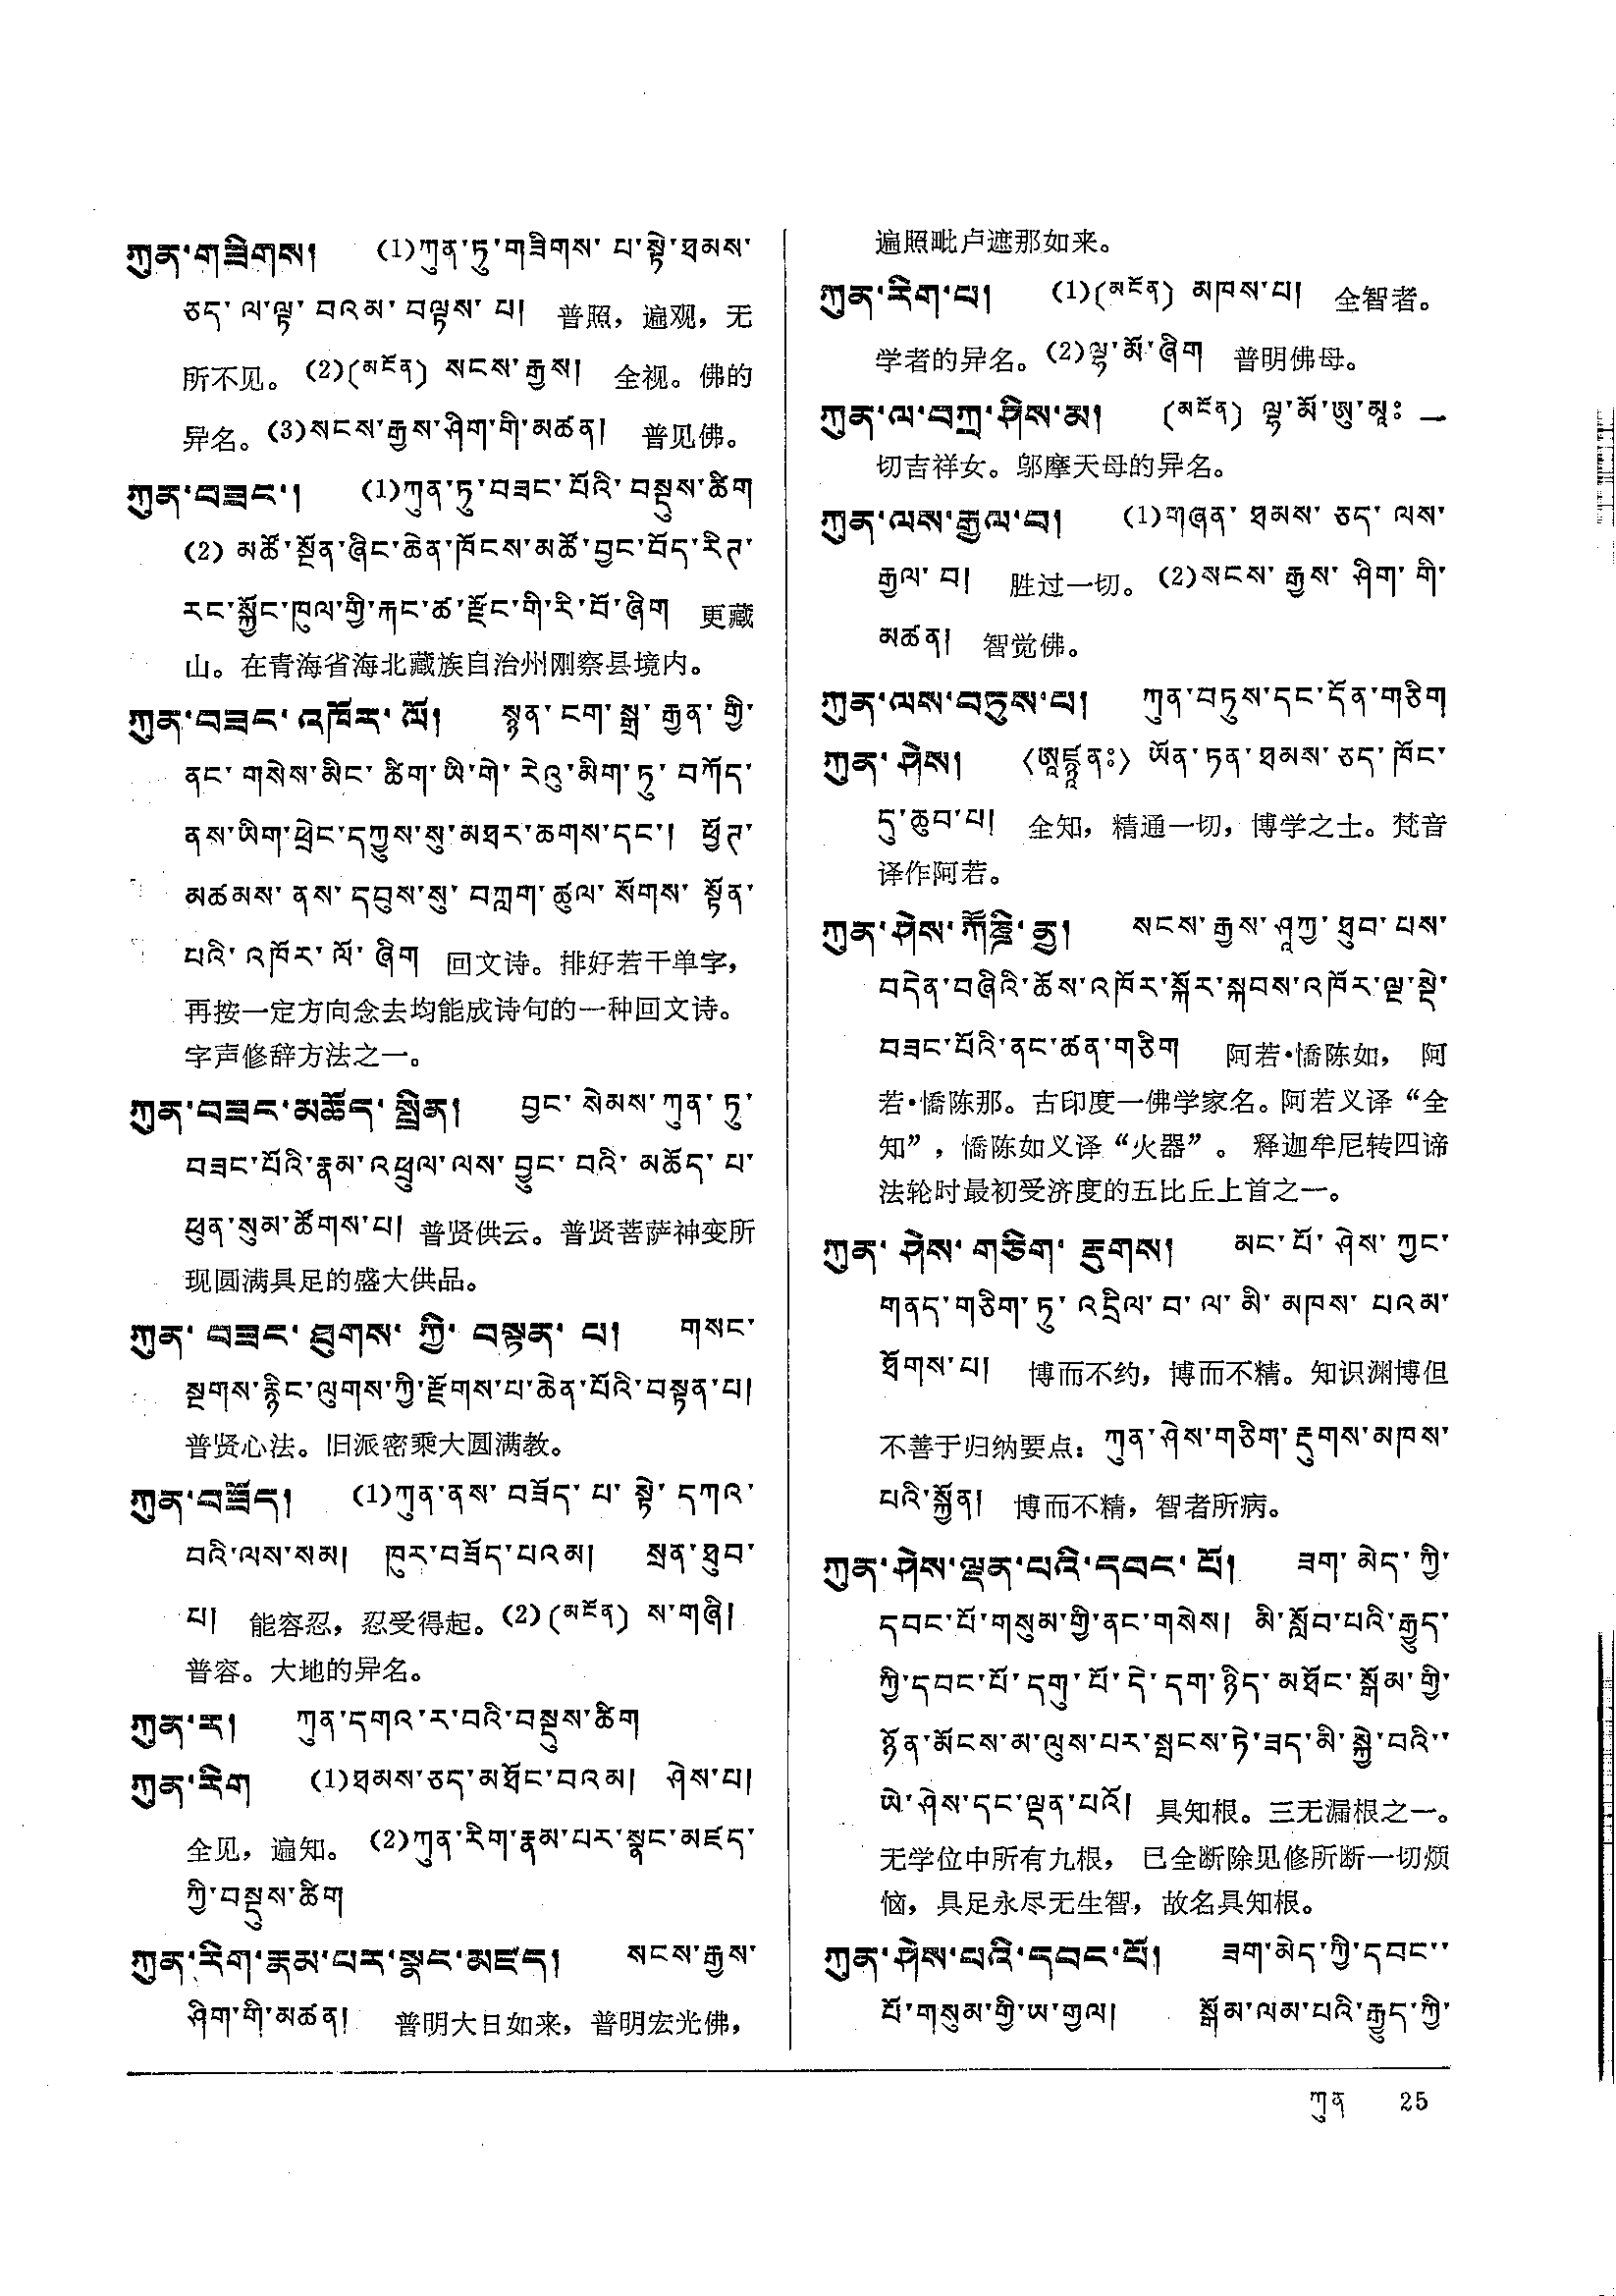 ཀུན་གཟིགས། (1)ཀུན་ཏུ་གཟིགས་པ་སྟེ་ཐམས་
ཅད་ལ་ལྟ་བའམ་བལྟས་པ། 普照，遍观，无
所不见。(2)(མངོན) སངས་རྒྱས། 全视。佛的
异名。(3)སངས་རྒྱས་ཤིག་གི་མཚན། 普见佛。
ཀུན་བཟང་། (1)ཀུན་ཏུ་བཟང་པོའི་བསྡུས་ཚིག
(2) མཚོ་སྔོན་ཞིང་ཆེན་ཁོངས་མཚོ་བྱང་བོད་རིཊ་
རང་སྐྱོང་ཁུལ་གྱི་རྐང་ཚ་རྫོང་གི་རི་བོ་ཞིག 更藏
山。在青海省海北藏族自治州刚察县境内。
ཀུན་བཟང་འཁོར་ལོ། སྙན་ངག་སྒྲ་རྒྱན་གྱི་
ནང་གསེས་མིང་ཚིག་ཡི་གེ་རེའུ་མིག་ཏུ་བཀོད་
ནས་ཡིག་ཕྲེང་དཀྱུས་སུ་མཐར་ཆགས་དང་། ཕྱོཊ་
མཚམས་ནས་དབུས་སུ་བཀླག་ཚུལ་སོགས་སྟོན་
པའི་འཁོར་ལོ་ཞིག 回文诗。排好若干单字，
再按一定方向念去均能成诗句的一种回文诗。
字声修辞方法之一。
ཀུན་བཟང་མཆོད་སྤྲིན། བྱང་སེམས་ཀུན་ཏུ་
བཟང་པོའི་རྣམ་འཕྲུལ་ལས་བྱུང་བའི་མཆོད་པ་
ཕུན་སུམ་ཚོགས་པ། 普贤供云。普贤菩萨神变所
现圆满具足的盛大供品。
ཀུན་བཟང་ཐུགས་ཀྱི་བསྟན་པ། གསང་
སྔགས་རྙིང་ལུགས་ཀྱི་རྫོགས་པ་ཆེན་པོའི་བསྟན་པ།
普贤心法。旧派密乘大圆满教。
ཀུན་བཟོད། (1)ཀུན་ནས་བཟོད་པ་སྟེ་དཀའ་
བའི་ལས་སམ། ཁུར་བཟོད་པའམ། སྲན་ཐུབ་
པ། 能容忍，忍受得起。(2)(མངོན) ས་གཞི།
普容。大地的异名。
ཀུན་ར། ཀུན་དགའ་ར་བའི་བསྡུས་ཚིག
ཀུན་རིག (1)ཐམས་ཅད་མཐོང་བའམ། ཤེས་པ།
全见，遍知。(2)ཀུན་རིག་རྣམ་པར་སྣང་མཛད་
ཀྱི་བསྡུས་ཚིག
ཀུན་རིག་རྣམ་པར་སྣང་མཛད། སངས་རྒྱས་
ཤིག་གི་མཚན། 普明大日如来，普明宏光佛，
遍照毗卢遮那如来。
ཀུན་རིག་པ། (1)(མངོན) མཁས་པ། 全智者。
学者的异名。(2)ལྷ་མོ་ཞིག 普明佛母。
ཀུན་ལ་བཀྲ་ཤིས་མ། (མངོན) ལྷ་མོ་ཨུ་མཱཿ 一
切吉祥女。邬摩天母的异名。
ཀུན་ལས་རྒྱལ་བ། (1)གཞན་ཐམས་ཅད་ལས་
རྒྱལ་བ། 胜过一切。(2)སངས་རྒྱས་ཤིག་གི་
མཚན། 智觉佛。
ཀུན་ལས་བཏུས་པ། ཀུན་བཏུས་དང་དོན་གཅིག
ཀུན་ཤེས། ཡོན་ཏན་ཐམས་ཅད་ཁོང་
དུ་ཆུབ་པ། 全知，精通一切，博学之士。梵音
译作阿若。
ཀུན་ཤེས་ཀཽཎྜི་ནྱ། སངས་རྒྱས་ཤཱཀྱ་ཐུབ་པས་
བདེན་བཞིའི་ཆོས་འཁོར་སྐོར་སྐབས་འཁོར་ལྔ་སྡེ་
བཟང་པོའི་ནང་ཚན་གཅིག 阿若·憍陈如， 阿
若·憍陈那。古印度一佛学家名。阿若义译“全
知”，憍陈如义译“火器”。释迦牟尼转四谛
法轮时最初受济度的五比丘上首之一。
ཀུན་ཤེས་གཅིག་རྡུགས། མང་པོ་ཤེས་ཀྱང་
གནད་གཅིག་ཏུ་འདྲིལ་བ་ལ་མི་མཁས་པའམ་
ཐོགས་པ། 博而不约，博而不精。知识渊博但
不善于归纳要点：ཀུན་ཤེས་གཅིག་རྡུགས་མཁས་
པའི་སྐྱོན། 博而不精，智者所病。
ཀུན་ཤེས་ལྡན་པའི་དབང་པོ། ཟག་མེད་ཀྱི་
དབང་པོ་གསུམ་གྱི་ནང་གསེས། མི་སློབ་པའི་རྒྱུད་
ཀྱི་དབང་པོ་དགུ་པོ་དེ་དག་ཉིད་མཐོང་སྒོམ་གྱི་
ཉོན་མོངས་མ་ལུས་པར་སྤངས་ཏེ་ཟད་མི་སྐྱེ་བའི་་
ཡེ་ཤེས་དང་ལྡན་པའོ། 具知根。三无漏根之一。
无学位中所有九根， 已全断除见修所断一切烦
恼，具足永尽无生智，故名具知根。
ཀུན་ཤེས་པའི་དབང་པོ། ཟག་མེད་ཀྱི་དབང་་
པོ་གསུམ་གྱི་ཡ་གྱལ། སྒོམ་ལམ་པའི་རྒྱུད་ཀྱི་
ཀུན 25